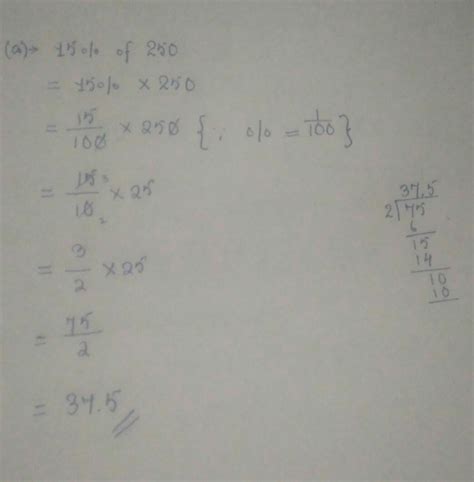 (a)→ 15% of 250
= 15% × 250
= 15/100 × 250 {∵ % = 1/100}
= 15 3/10 2 × 25
= 3/2 × 25
= 75/2
= 37.5
37.5
2)75
6
15
14
10
10